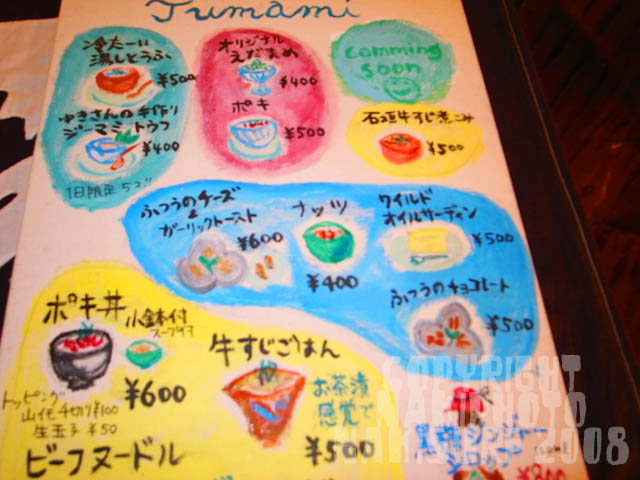 Tumami
冷たーい
濡しとうふ
¥500
ゆきさんの手作り
ジーマミトウフ
¥400
1日限定5コ!!
オリジナル
えだまめ
¥400
ポキ
¥500
comming
soon
石垣牛すじ煮こみ
¥500
ふつうのチーズ
&
ガーリックトースト
¥600
ナッツ
¥400
ワイルド
オイルサーディン
¥500
ふつうのチョコレート
¥500
ポキ丼
小鉢付
¥600
トッピング
山イモ千切り¥100
生玉子 ¥50
牛すじごはん
お茶漬
感覚で
¥500
ビーフヌードル
黒糖ジンジャー
シロップ
¥800
COPYRIGHT
2008